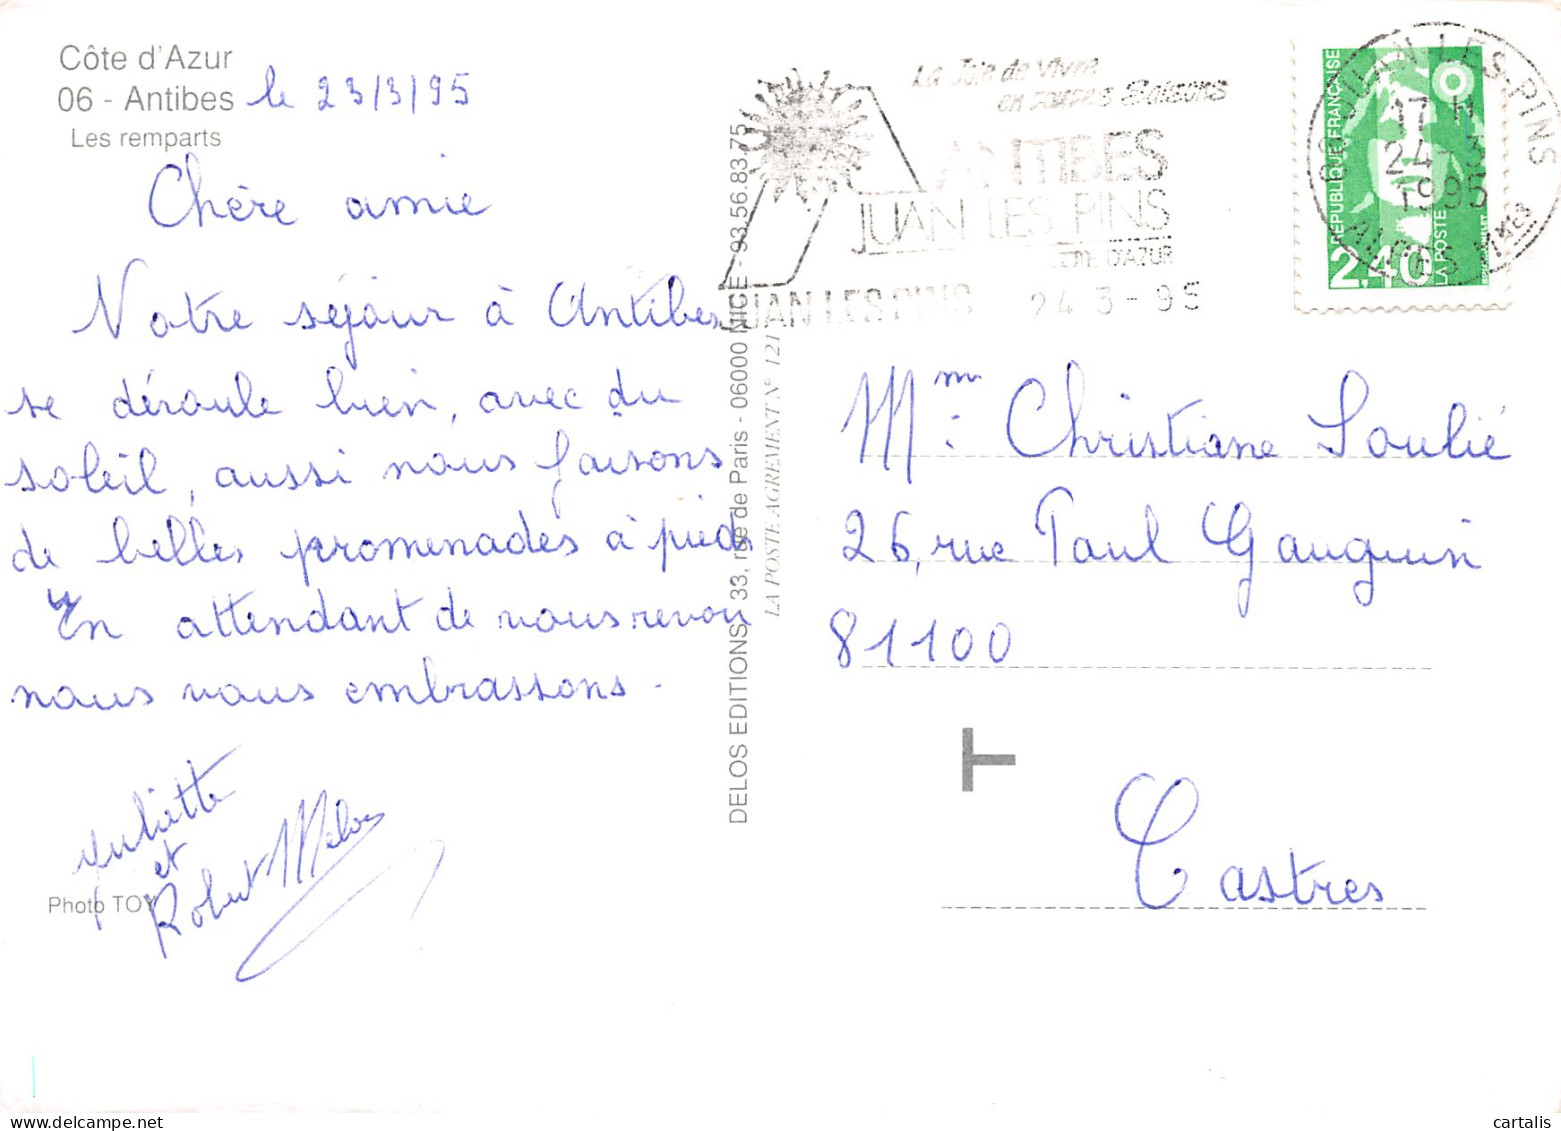 Côte d'Azur
06 - Antibes le 23/3/95
Les remparts
Chère amie
Notre séjour à Antibes
se déroule bien, avec du
soleil, aussi nous faisons
de belles promenades à pieds
En attendant de vous revoir
nous vous embrassons.
Juliette
et
Robert
Photo TOY
DELOS EDITIONS, 33, rue de Paris - 06000 NICE - 93.56.83.75
LA POSTE AGREMENT N° 121
La Joie de Vivre
en toutes Saisons
ANTIBES
JUAN LES PINS
COTE D'AZUR
JUAN LES PINS 24 3 - 95
RÉPUBLIQUE FRANÇAISE
LA POSTE
2,40
JUAN-LES-PINS
17 H
24 - 3
1995
ALPES Mmes
Mme Christiane Soulié
26, rue Paul Gauguin
81100
T
Castres
cartalis